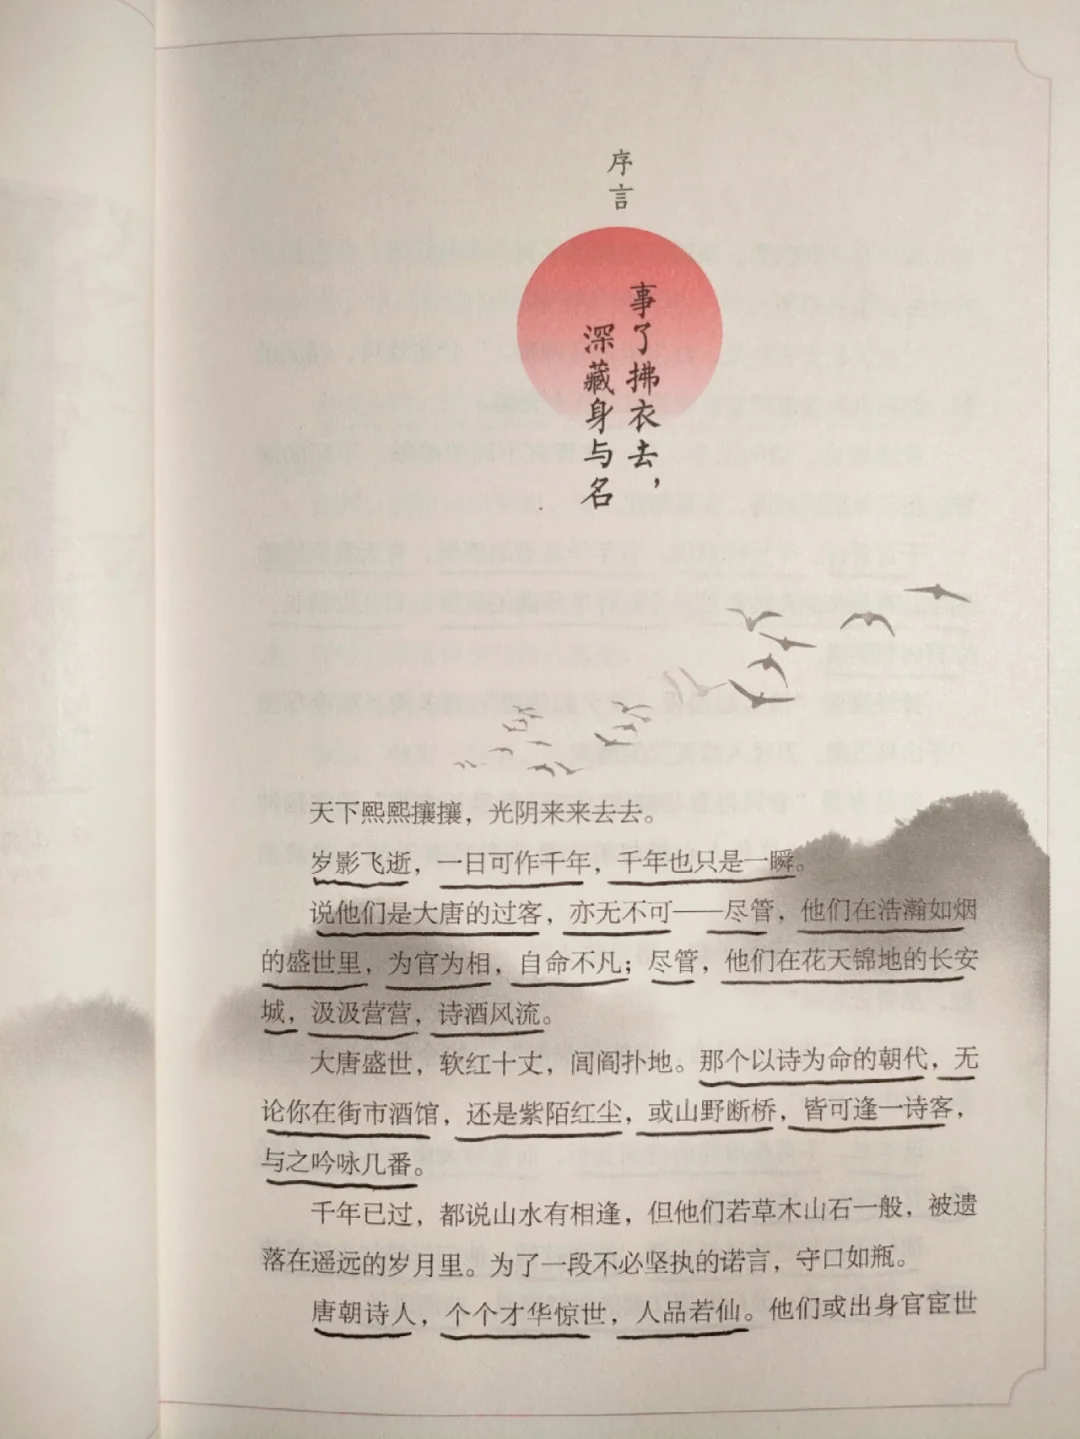 序言
事了拂衣去，
深藏身与名
天下熙熙攘攘，光阴来来去去。
岁影飞逝，一日可作千年，千年也只是一瞬。
说他们是大唐的过客，亦无不可——尽管，他们在浩瀚如烟
的盛世里，为官为相，自命不凡；尽管，他们在花天锦地的长安
城，汲汲营营，诗酒风流。
大唐盛世，软红十丈，闾阎扑地。那个以诗为命的朝代，无
论你在街市酒馆，还是紫陌红尘，或山野断桥，皆可逢一诗客，
与之吟咏几番。
千年已过，都说山水有相逢，但他们若草木山石一般，被遗
落在遥远的岁月里。为了一段不必坚执的诺言，守口如瓶。
唐朝诗人，个个才华惊世，人品若仙。他们或出身官宦世